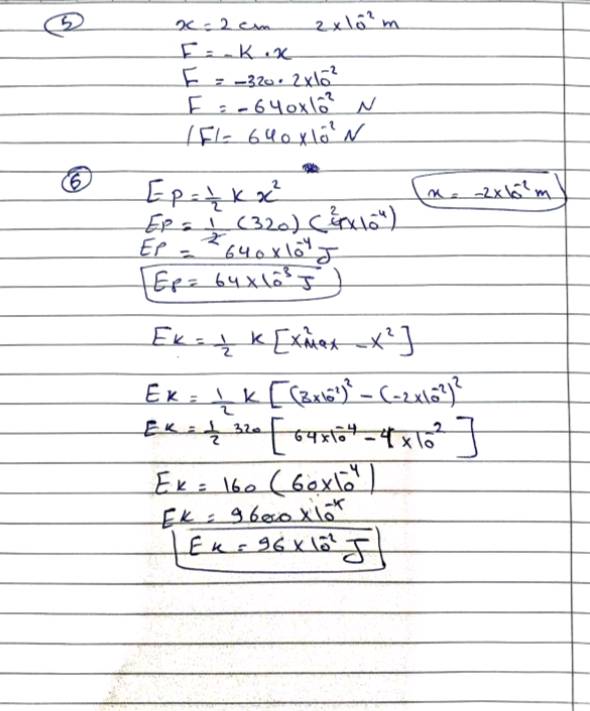 ⑤ x = 2 cm 2x10⁻² m
F = -K . x
F = -320 . 2x10⁻²
F = -640x10⁻² N
|F| = 640x10⁻² N
⑥ Ep = 1/2 K x² x = -2x10⁻² m
Ep = 1/2 (320) (4x10⁻⁴)
Ep = 640x10⁻⁴ J
Ep = 64x10⁻³ J
Ek = 1/2 K [x²max - x²]
Ek = 1/2 K [(8x10⁻²)² - (-2x10⁻²)²
Ek = 1/2 320 [64x10⁻⁴ - 4x10⁻²]
Ek = 160 (60x10⁻⁴)
Ek = 9600x10⁻⁴
Ek = 96x10⁻² J